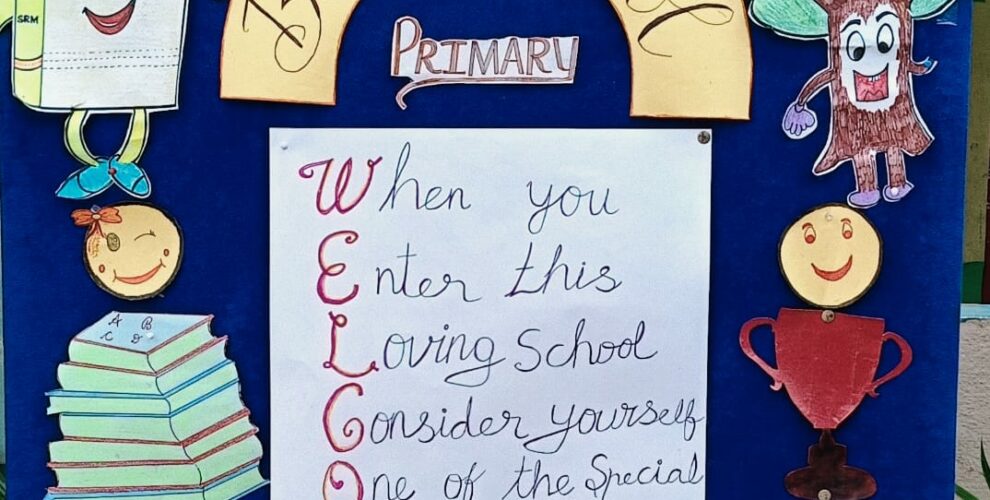 SRM
PRIMARY
When you
Enter this
Loving School
Consider yourself
One of the Special
A B
C D